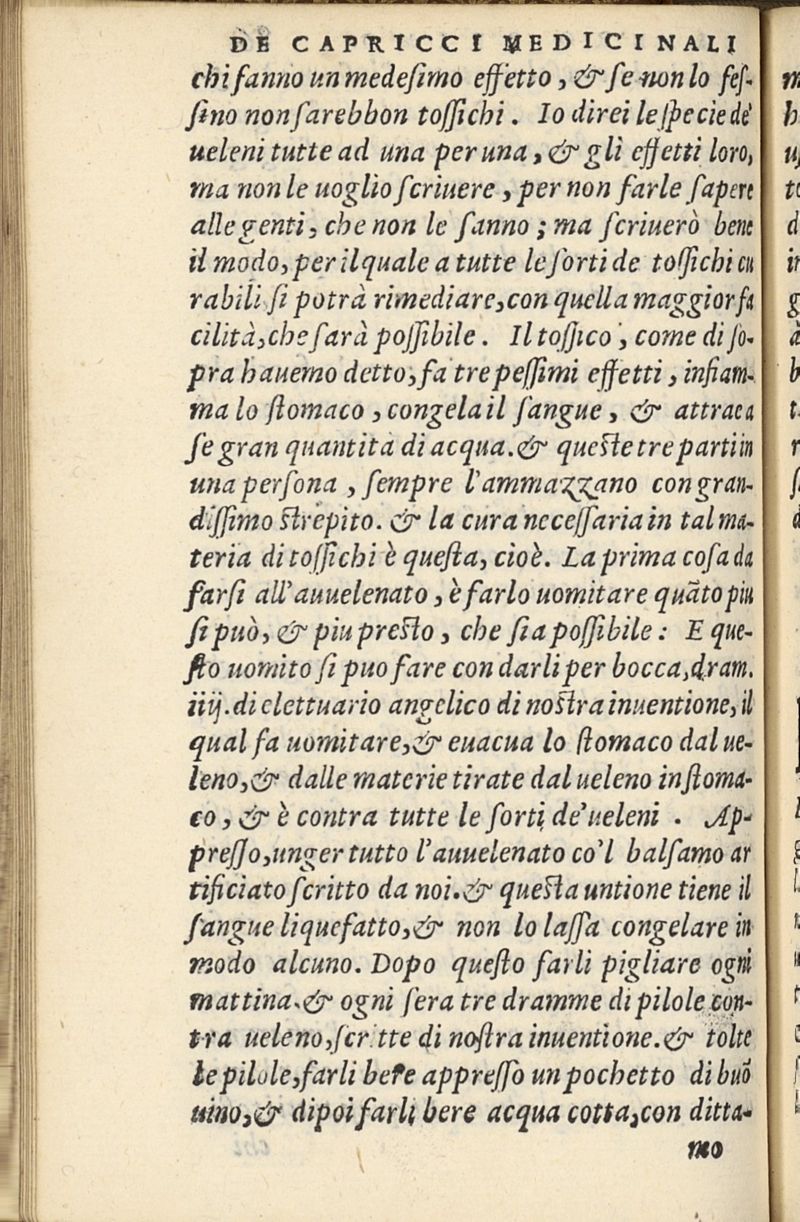 DE CAPRICCI MEDICINALI
chi fanno un medeſimo effetto, & ſe non lo feſ-
ſino non ſarebbon toſſichi. Io direi le ſpecie de'
ueleni tutte ad una per una, & gli effetti loro,
ma non le uoglio ſcriuere, per non farle ſapere
alle genti, che non le ſanno; ma ſcriuerò bene
il modo, per il quale a tutte le ſorti de toſſichi cu
rabili ſi potrà rimediare, con quella maggior fa
cilità, che ſarà poſſibile. Il toſſico, come di ſo-
pra hauemo detto, fa tre peſſimi effetti, infiam-
ma lo ſtomaco, congela il ſangue, & attrae a
ſe gran quantità di acqua. & queſte tre parti in
una perſona, ſempre l'ammazzano con gran-
diſſimo ſtrepito. & la cura neceſſaria in tal ma-
teria di toſſichi è queſta, cioè. La prima coſa da
farſi all'auuelenato, è farlo uomitare quãto piu
ſi può, & piu preſto, che ſia poſſibile: E que-
ſto uomito ſi puo fare con darli per bocca, dram.
iiij. di elettuario angelico di noſtra inuentione, il
qual fa uomitare, & euacua lo ſtomaco dal ue-
leno, & dalle materie tirate dal ueleno in ſtoma-
co, & è contra tutte le ſorti de'ueleni. Ap-
preſſo, unger tutto l'auuelenato co'l balſamo ar
tificiato ſcritto da noi. & queſta untione tiene il
ſangue liquefatto, & non lo laſſa congelare in
modo alcuno. Dopo queſto farli pigliare ogni
mattina. & ogni ſera tre dramme di pilole con-
tra ueleno, ſcritte di noſtra inuentione. & tolte
le pilole, farli bere appreſſo un pochetto di buõ
uino, & dipoi farli bere acqua cotta, con ditta-
mo